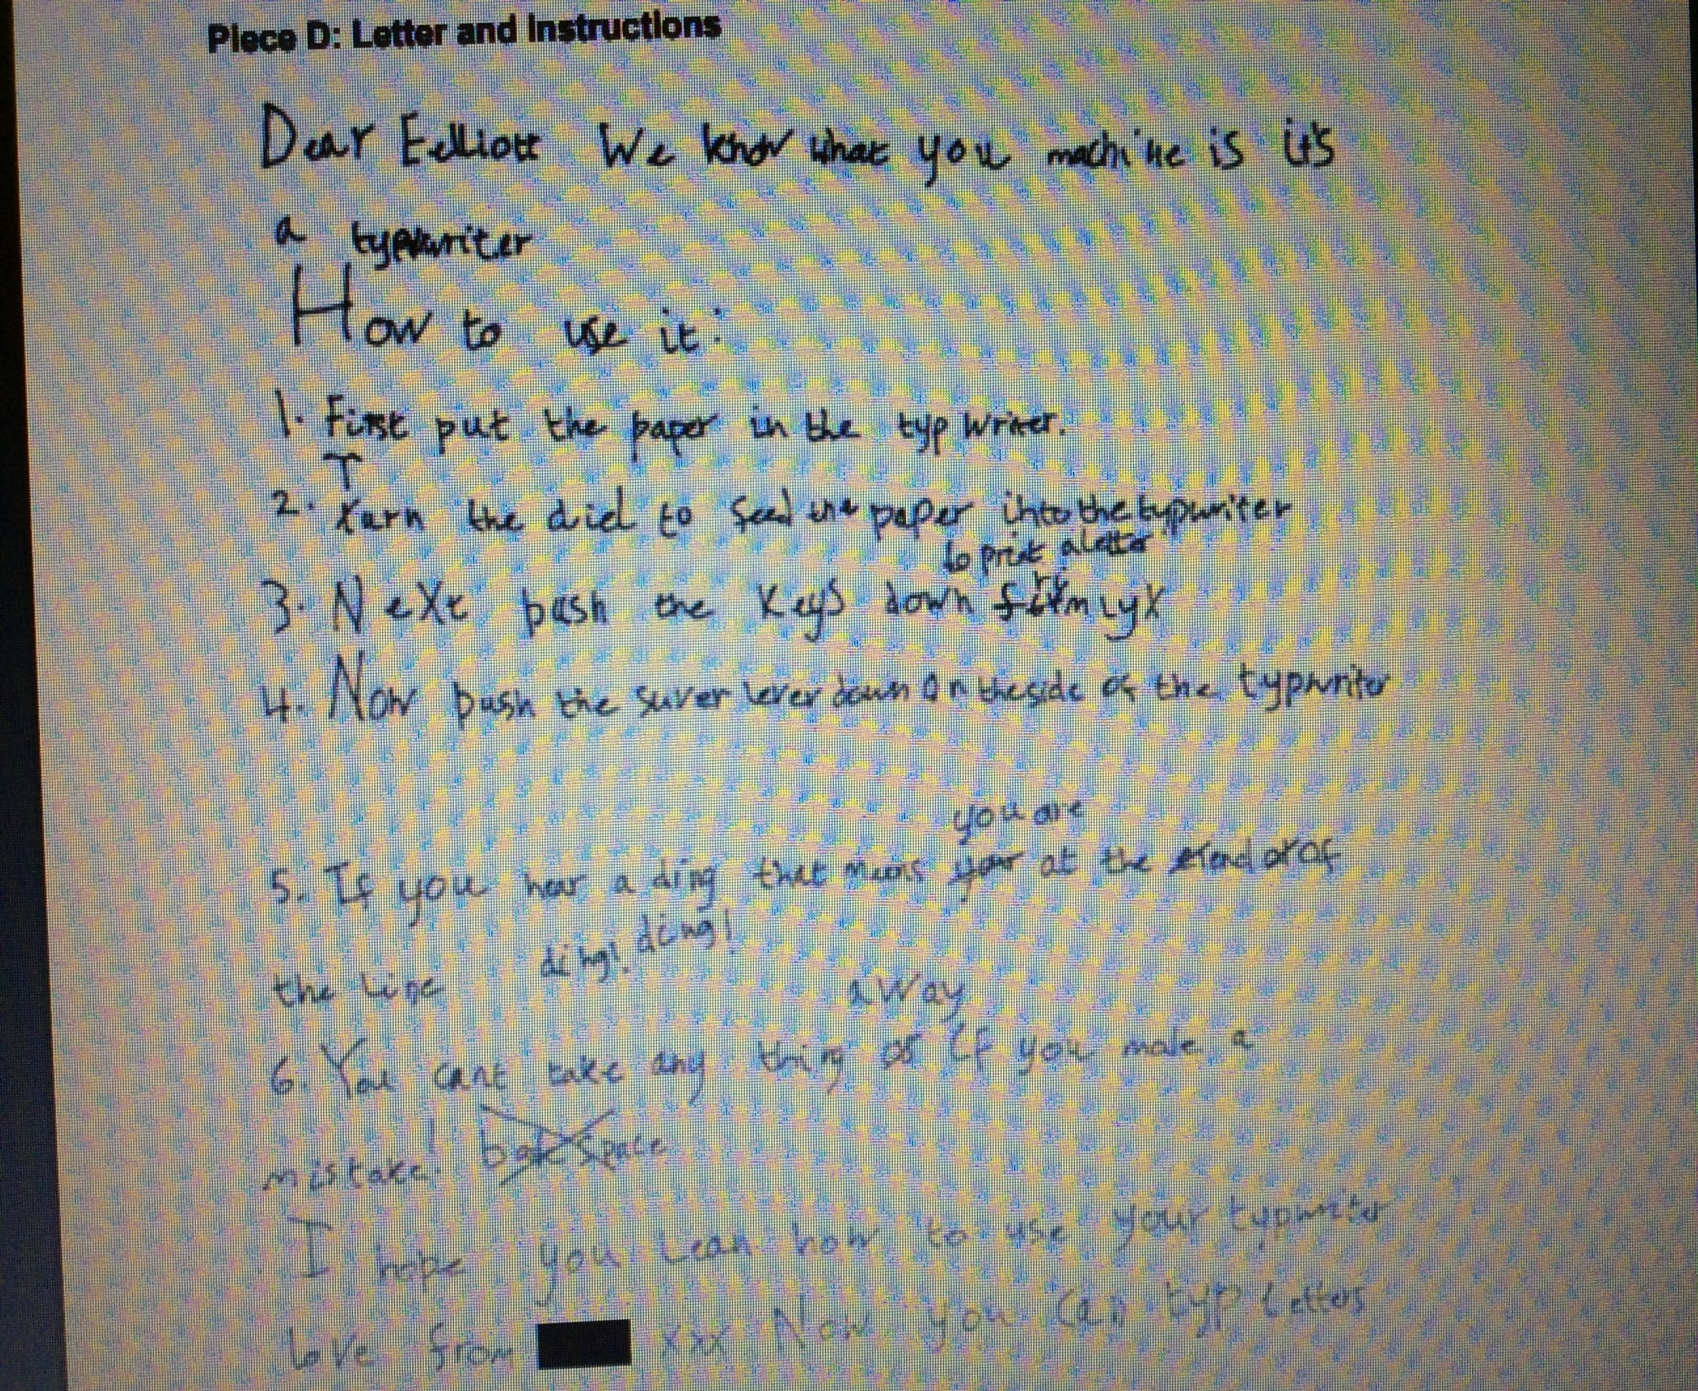 Piece D: Letter and Instructions
Dear Eelliott We know what you machine is it's
a typewriter
How to use it:
1. First put the paper in the typ writer.
T
2. turn the diel to feed the paper into the typwriter
to print a letter
3. Next push the keys down firmly
4. Now push the suver lever down on the side of the typwriter
you are
5. If you hear a ding that means your at the end of
the line ding! ding!
away
6. You cant take any thing of if you make a
mistake! bakspace
I hope you lean how to use your typwriter
love from xxx Now you can typ letters